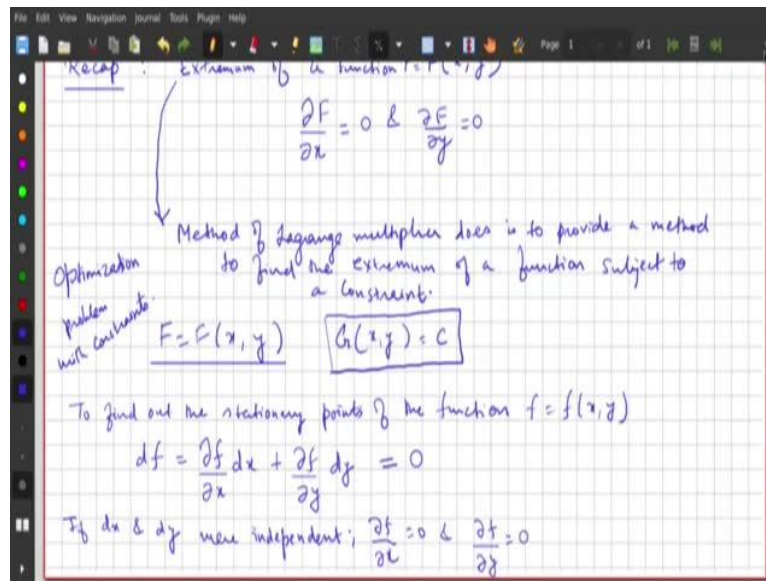 File Edit View Navigation Journal Tools Plugin Help
Page 1 of 1
Recap : Extremum of a function F = F(x, y)
∂F/∂x = 0 & ∂F/∂y = 0
Method of Lagrange multiplier does is to provide a method
to find the extremum of a function subject to
a constraint.
Optimization
problem
with constraints.
F = F(x, y) G(x, y) = C
To find out the stationery points of the function f = f(x, y)
df = ∂f/∂x dx + ∂f/∂y dy = 0
If dx & dy were independent; ∂f/∂x = 0 & ∂f/∂y = 0